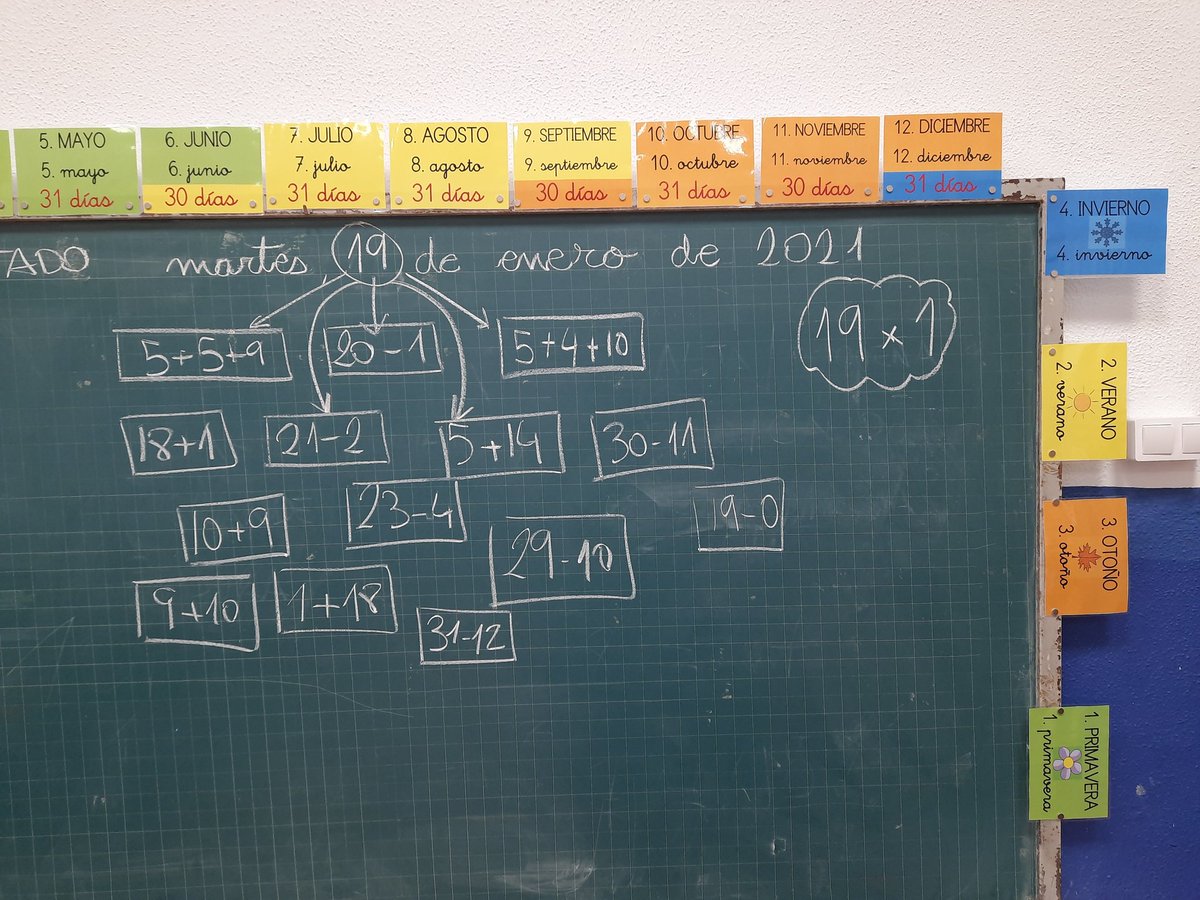 5. MAYO
5. mayo
31 días
6. JUNIO
6. junio
30 días
7. JULIO
7. julio
31 días
8. AGOSTO
8. agosto
31 días
9. SEPTIEMBRE
9. septiembre
30 días
10. OCTUBRE
10. octubre
31 días
11. NOVIEMBRE
11. noviembre
30 días
12. DICIEMBRE
12. diciembre
31 días
TADO martes 19 de enero de 2021
5+5+9
20-1
5+4+10
19x1
18+1
21-2
5+14
30-11
10+9
23-4
29-10
19-0
9+10
1+18
31-12
4. INVIERNO
4. invierno
2. VERANO
2. verano
3. OTOÑO
3. otoño
1. PRIMAVERA
1. primavera